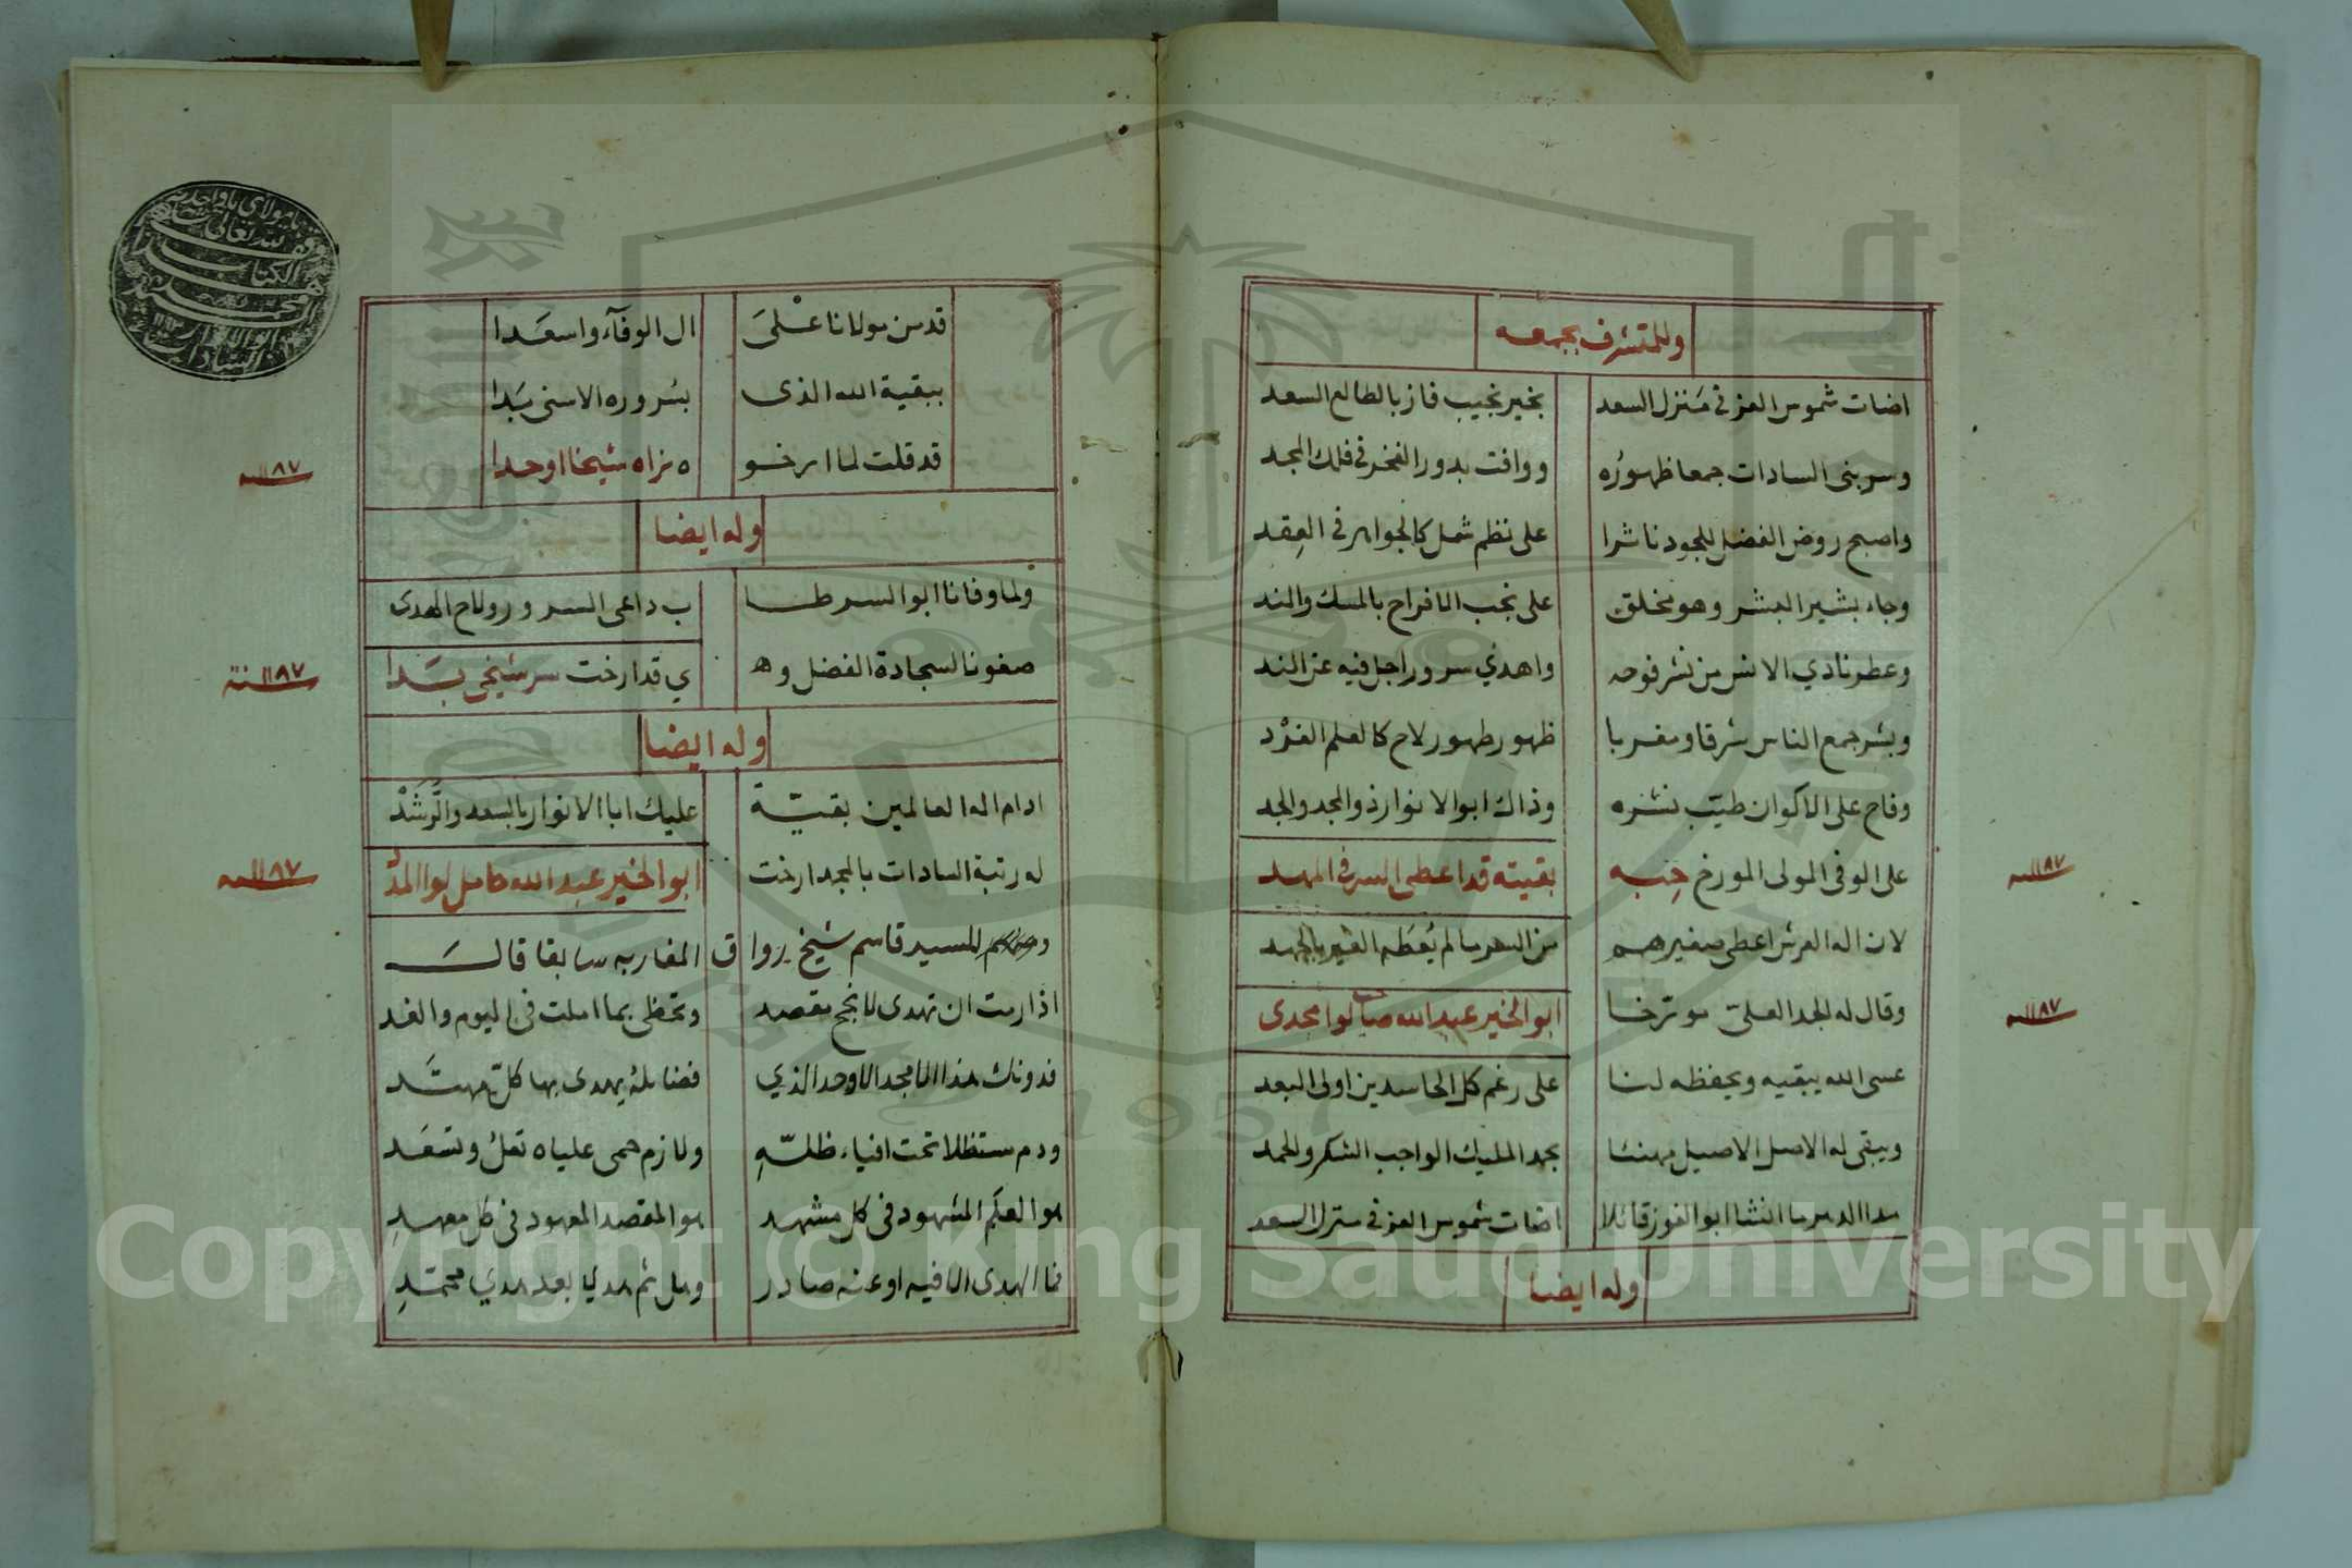 وللمتشرف بجمعه
اضات شموس العز فى منزل السعد بخير نجيب فاز بالطالع السعد
وسر بنى السادات جمعا ظهوره ووافت بدور الفخر فى فلك المجد
واصبح روض الفضل للجود ناشرا على نظم شمل كالجواهر فى العقد
وجاء بشير البشر وهو مخلق على نجب الافراح بالمسك والند
وعطر نادي الانس من نشر فوحه واهدي سرورا جل فيه عن الند
وبشر جمع الناس شرقا ومغربا ظهور طهور لاح كالعلم الفرد
وفاح على الاكوان طيب نشره وذاك ابو الانوار ذو المجد والجد
على الوفى المولى المورخ حبه بقيته قد اعطى السر فى المهد
١١٨٧ سنه
لان اله العرش اعطى صغيرهم من السر ما لم يعطه الغير بالجهد
وقال له الجد العلى مورخا ابو الخير عبد الله صاحب لوا مجدى
١١٨٧ سنه
عسى الله يبقيه ويحفظه لنا على رغم كل الحاسدين اولى البعد
ويبقى له الاصل الاصيل مهنئا بحمد المليك الواجب الشكر والحمد
مدا الدهر ما انشا ابو الفوز قائلا اضات شموس العز فى منزل السعد
وله ايضا
قد من مولانا على ال الوفآء واسعدا
ببقية الله الذى بسروره الاسنى بدا
قد قلت لما ارخو ه نراه شيخا اوحدا
١١٨٧ سنه
وله ايضا
ولما وفانا ابو السر طا ب داعى السرور ولاح الهدى
صفونا لسجادة الفضل وه ي قد ارخت سر شيخى بدا
١١٨٧ سنة
وله ايضا
ادام اله العالمين بقية عليك ابا الانوار بالسعد والرشد
له رتبة السادات بالمجد ارخت ابو الخير عبد الله حامل لوا المد
١١٨٧ سنه
للسيد قاسم شيخ رواق المغاربه سابقا قال
اذا رمت ان تهدى لانجح مقصد وتحظى بما املت فى اليوم والغد
فدونك هذا الامجد الاوحد الذي فضائله يهدى بها كل مهتد
ودم مستظلا تحت افياء ظله ولازم حمى علياه تعل وتسعد
هو العلم المشهود فى كل مشهد هو المقصد المعهود فى كل معهد
فما الهدى الا فيه او عنه صادر وهل ثم هدي بعد هدي محمد
يا مولاي يا واحد
لله تعالى
الكتاب
محمد
ابو الانوار
السادات
1957
Copyright © King Saud University